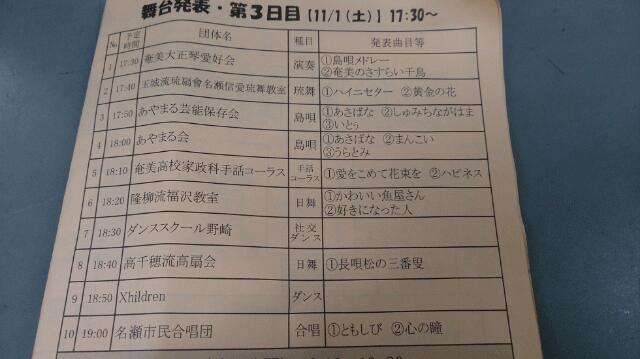 舞台発表・第3日目【11/1(土)】17:30～
No. 予定時間 団体名 種目 発表曲目等
1 17:30 奄美大正琴愛好会 演奏 ①島唄メドレー
②奄美のさすらい千鳥
2 17:40 玉城流琉扇會名瀬信愛琉舞教室 琉舞 ①ハイニセター ②黄金の花
3 17:50 あやまる芸能保存会 島唄 ①あさばな ②しゅみちながはま
③いとぅ
4 18:00 あやまる会 島唄 ①あさばな ②まんこい
③うらとみ
5 18:10 奄美高校家政科手話コーラス 手話コーラス ①愛をこめて花束を ②ハピネス
6 18:20 隆柳流福沢教室 日舞 ①かわいい魚屋さん
②好きになった人
7 18:30 ダンススクール野崎 社交ダンス
8 18:40 高千穂流高扇会 日舞 ①長唄松の三番叟
9 18:50 Xhildren ダンス
10 19:00 名瀬市民合唱団 合唱 ①ともしび ②心の瞳